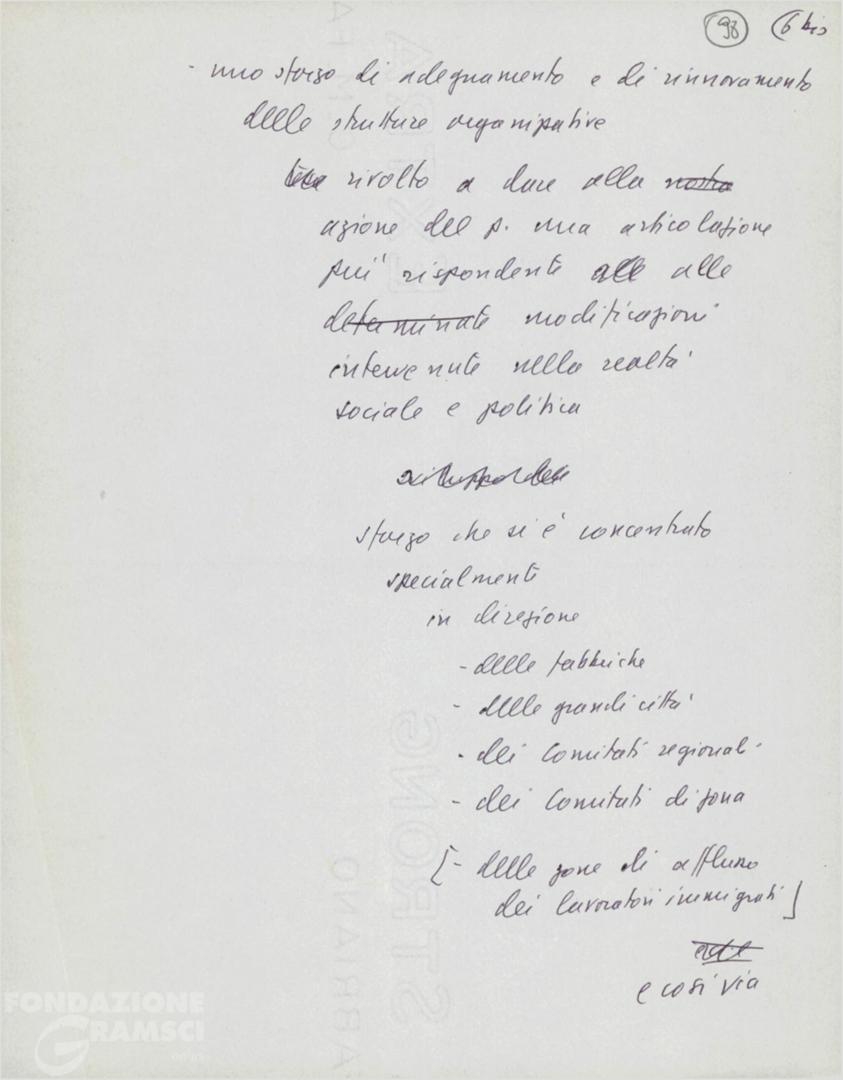 98 (6 bis
- uno sforzo di adeguamento e di rinnovamento
delle strutture organizzative
rivolto a dare alla nostra
azione del p. una articolazione
più rispondente alle alle
determinate modificazioni
intervenute nella realtà
sociale e politica
sforzo che si è concentrato
specialmente
in direzione
- delle fabbriche
- delle grandi città
- dei Comitati regionali
- dei Comitati di zona
[- delle zone di afflusso
dei lavoratori immigrati]
e così via
FABRIANO
STRONG
FONDAZIONE
GRAMSCI